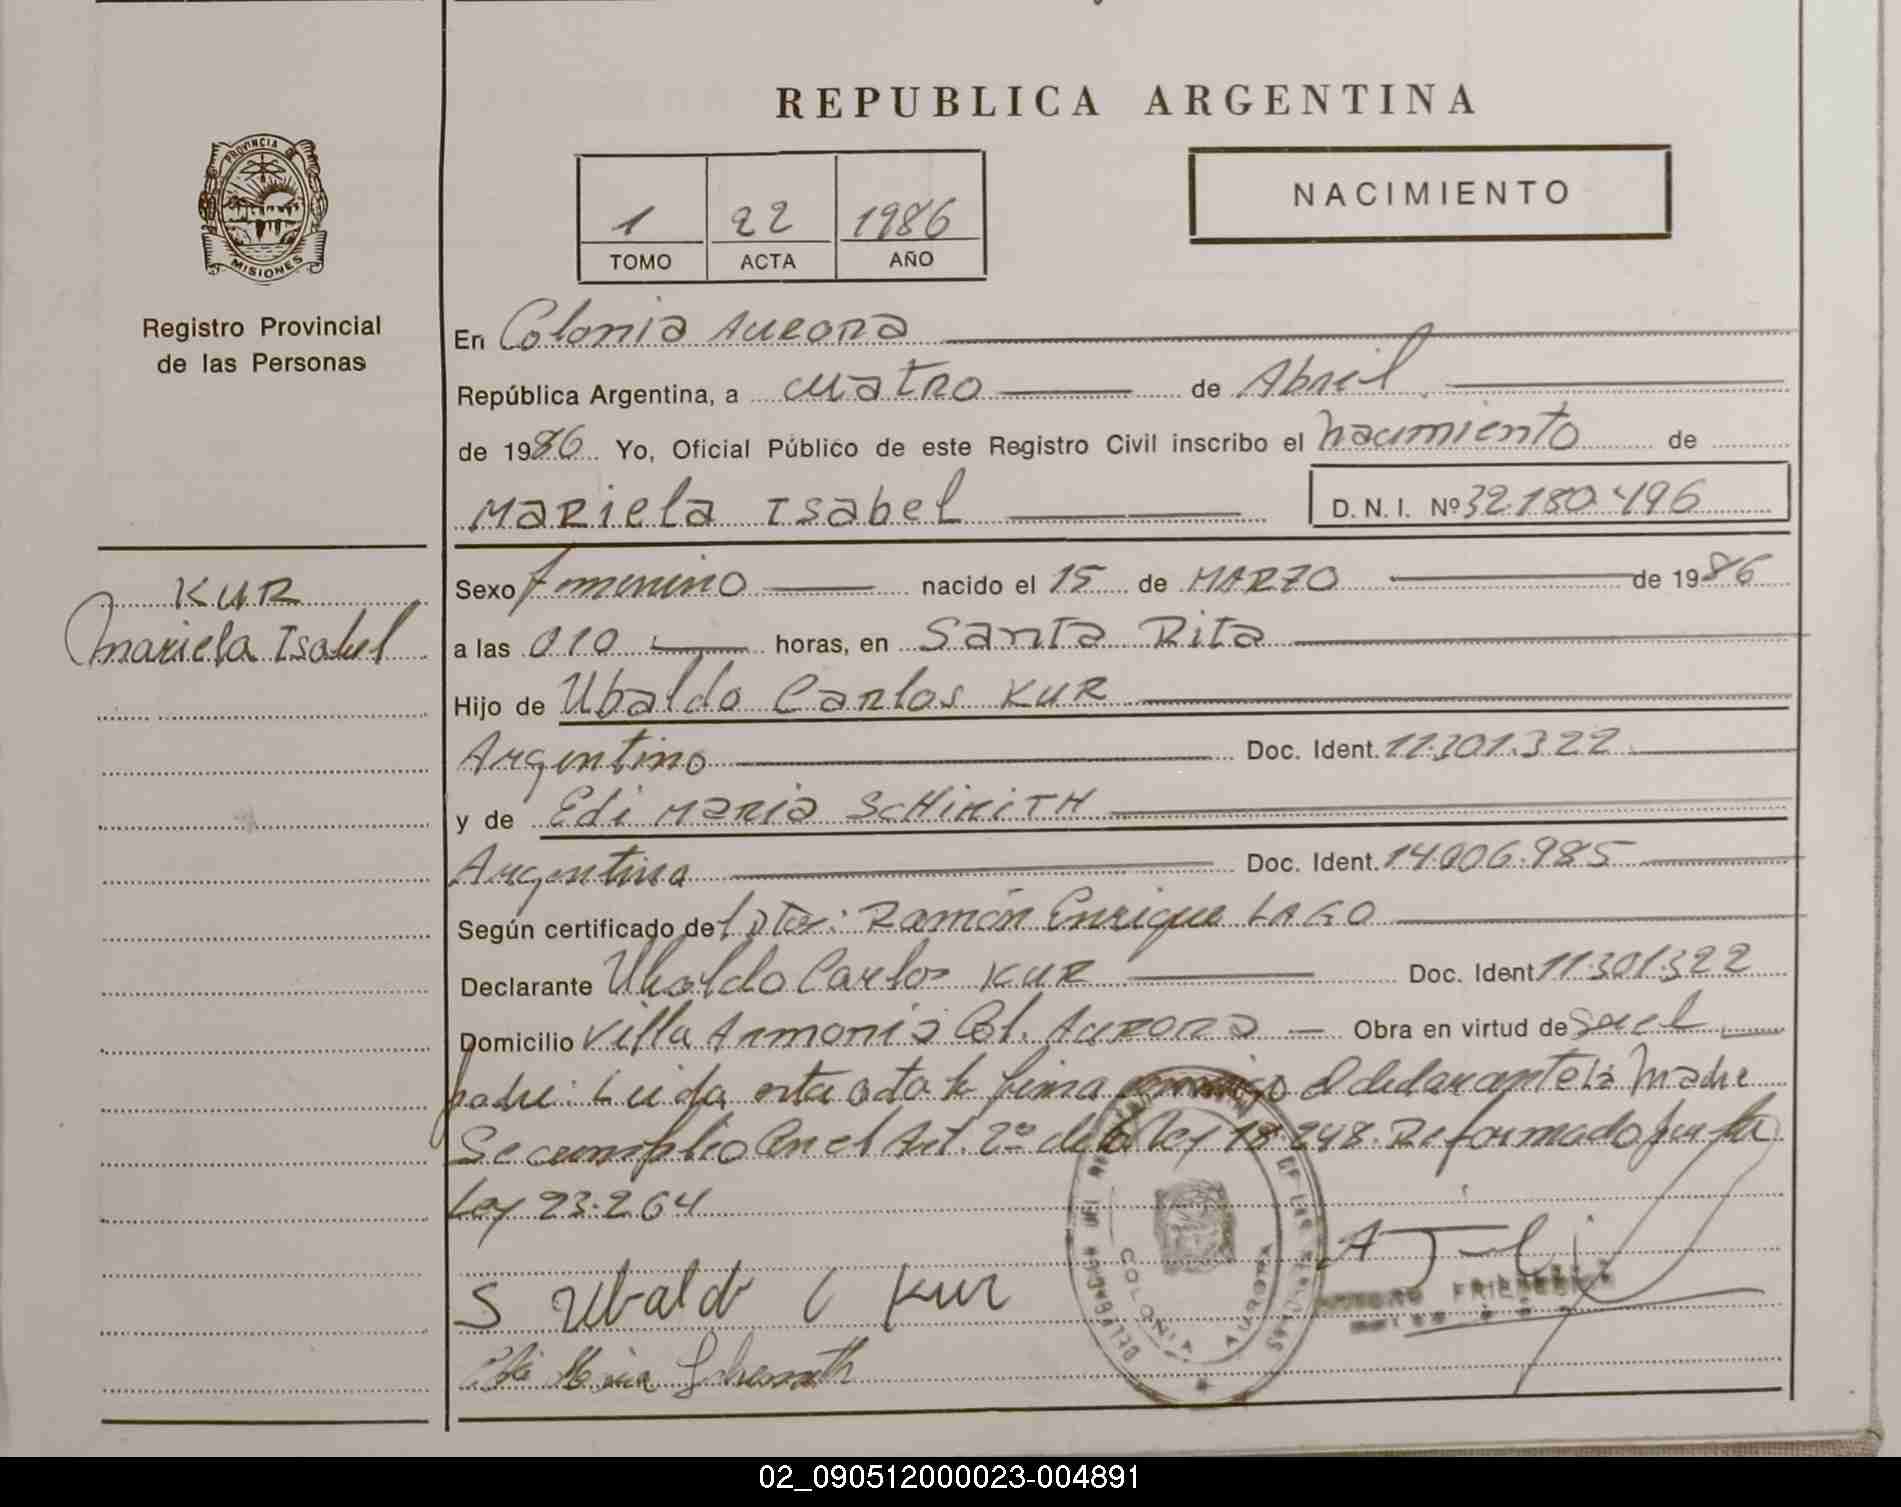 REPUBLICA ARGENTINA
PROVINCIA DE
MISIONES
Registro Provincial
de las Personas
1 22 1986
TOMO ACTA AÑO
NACIMIENTO
En Colonia Aurora
República Argentina, a cuatro de Abril
de 1986 Yo, Oficial Público de este Registro Civil inscribo el nacimiento de
Mariela Isabel D. N. I. Nº 32.180.496
KUR
Mariela Isabel
Sexo femenino nacido el 15 de MARZO de 1986
a las 010 horas, en Santa Rita
Hijo de Ubaldo Carlos KUR
Argentino Doc. Ident. 11.301.322
y de Edi Maria SCHMITH
Argentina Doc. Ident. 14.006.985
Según certificado del Dtor: Ramón Enrique LAGO
Declarante Ubaldo Carlos KUR Doc. Ident 11.301.322
Domicilio Villa Armonia Col. Aurora Obra en virtud de Ser el
padre: Leida esta acta la firma conmigo el declarante la Madre
Se cumplio Con el Art. 2º de la ley 18.248. Reformado por la
Ley 23.264
S Ubaldo C Kur
COLONIA AURORA